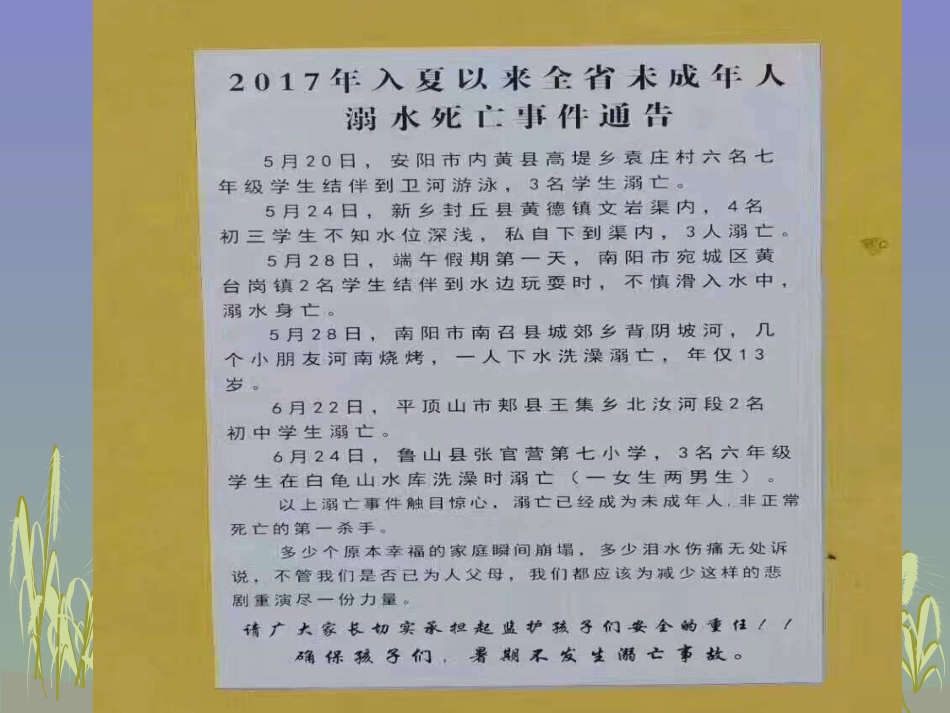 2017年入夏以来全省未成年人
溺水死亡事件通告
5月20日，安阳市内黄县高堤乡袁庄村六名七
年级学生结伴到卫河游泳，3名学生溺亡。
5月24日，新乡封丘县黄德镇文岩渠内，4名
初三学生不知水位深浅，私自下到渠内，3人溺亡。
5月28日，端午假期第一天，南阳市宛城区黄
台岗镇2名学生结伴到水边玩耍时，不慎滑入水中，
溺水身亡。
5月28日，南阳市南召县城郊乡背阴坡河，几
个小朋友河南烧烤，一人下水洗澡溺亡，年仅13
岁。
6月22日，平顶山市郏县王集乡北汝河段2名
初中学生溺亡。
6月24日，鲁山县张官营第七小学，3名六年级
学生在白龟山水库洗澡时溺亡（一女生两男生）。
以上溺亡事件触目惊心，溺亡已经成为未成年人.非正常
死亡的第一杀手。
多少个原本幸福的家庭瞬间崩塌，多少泪水伤痛无处诉
说，不管我们是否已为人父母，我们都应该为减少这样的悲
剧重演尽一份力量。
请广大家长切实承担起监护孩子们安全的重任！！
确保孩子们，暑期不发生溺亡事故。